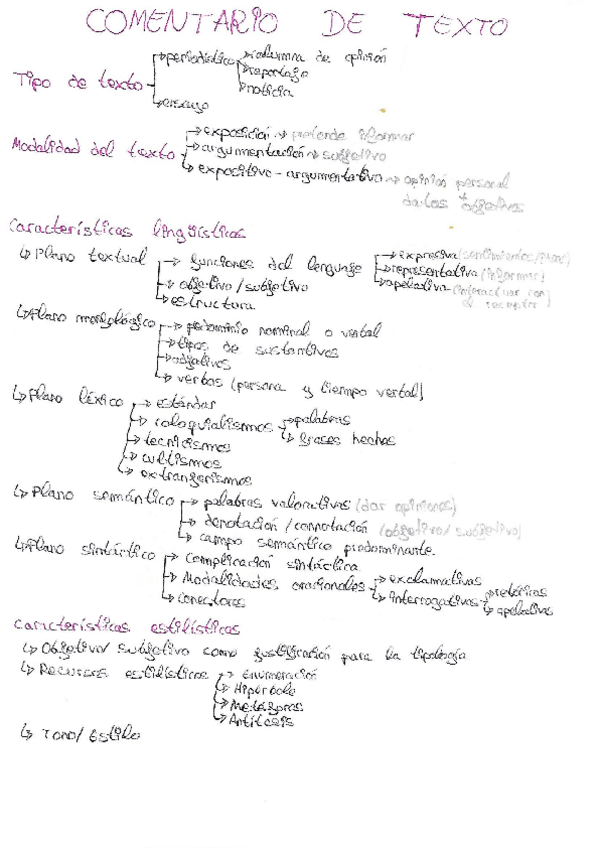 COMENTARIO DE TEXTO
Tipo de texto → periodístico → columna de opinión
→ reportaje
→ noticia
→ ensayo
Modalidad del texto → exposición → pretende informar
→ argumentación → subjetivo
→ expositivo - argumentativo → opinión personal
datos objetivos
Características lingüísticas
↳ Plano textual → funciones del lenguaje → expresiva (sentimientos/)
→ representativa (informar)
→ apelativa (interactuar con
el receptor)
→ objetivo / subjetivo
→ estructura
↳ Plano morfológico → predominio nominal o verbal
→ tipos de sustantivos
→ adjetivos
→ verbos (persona y tiempo verbal)
↳ Plano léxico → estándar
→ coloquialismos → palabras
↳ frases hechas
→ tecnicismos
→ cultismos
→ extrangerismos
↳ Plano semántico → palabras valorativas (dar opiniones)
→ denotación / connotación (objetivo / subjetivo)
↳ campo semántico predominante.
↳ Plano sintáctico → Complicación sintáctica
→ Modalidades oracionales → exclamativas
↳ interrogativas → retóricas
↳ apelativas
↳ conectores
Características estilísticas
↳ Objetivo/ Subjetivo como justificación para la tipología
↳ Recursos estilísticos → Enumeración
→ Hipérbole
→ Metáforas
→ Antítesis
↳ Tono/ Estilo